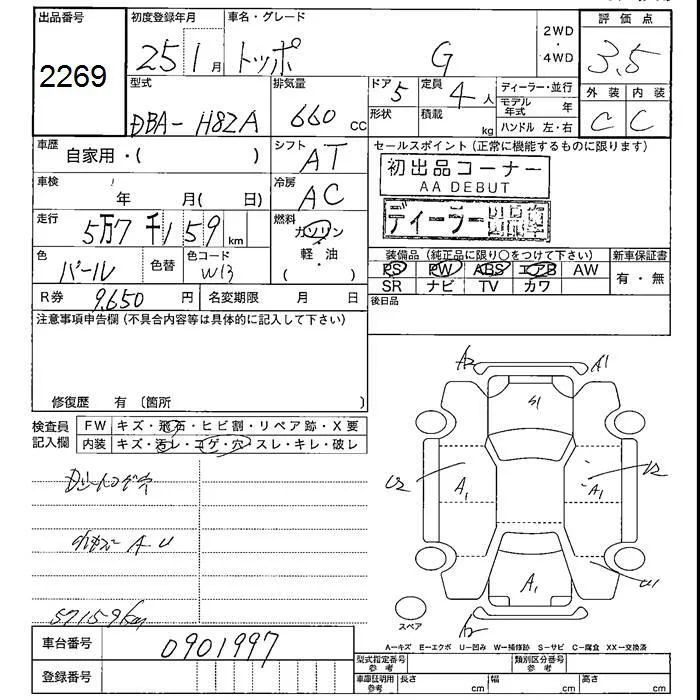 出品番号
2269
初度登録年月
25 1月
車名・グレード
トッポ G
2WD
・
4WD
評価点
3.5
外装 内装
C C
型式
DBA- H82A
排気量
660 CC
ドア 5
形状
定員 4人
積載 kg
ディーラー・並行
モデル年式 年
ハンドル 左・右
車歴
自家用・( )
シフト
AT
車検
年 月( 日)
冷房
AC
走行
5万7千159km
燃料
ガソリン
・
軽・油
( )
色
パール
色替
色コード
W13
R券 9,650円
名変期限 月 日
セールスポイント(正常に機能するものに限ります)
初出品コーナー
AA DEBUT
ディーラー出品車
装備品(純正品に限り○をつけて下さい)
PS PW ABS エアB AW
SR ナビ TV カワ
新車保証書
有・無
後日品
注意事項申告欄(不具合内容等は具体的に記入して下さい)
修復歴 有 〔箇所 〕
検査員
記入欄
FW キズ・飛石・ヒビ割・リペア跡・X要
内装 キズ・汚レ・コゲ・穴・スレ・キレ・破レ
A U
57159km
A2 A1
S1
U2 A1 A1 U2
A1 U1
A2
スペア
A-キズ E-エクボ U-凹み W-補修跡 S-サビ C-腐食 XX-交換済
車台番号 0901997
登録番号
型式指定番号
参考
類別区分番号
参考
車庫証明用
参考
長さ cm
幅 cm
高さ cm